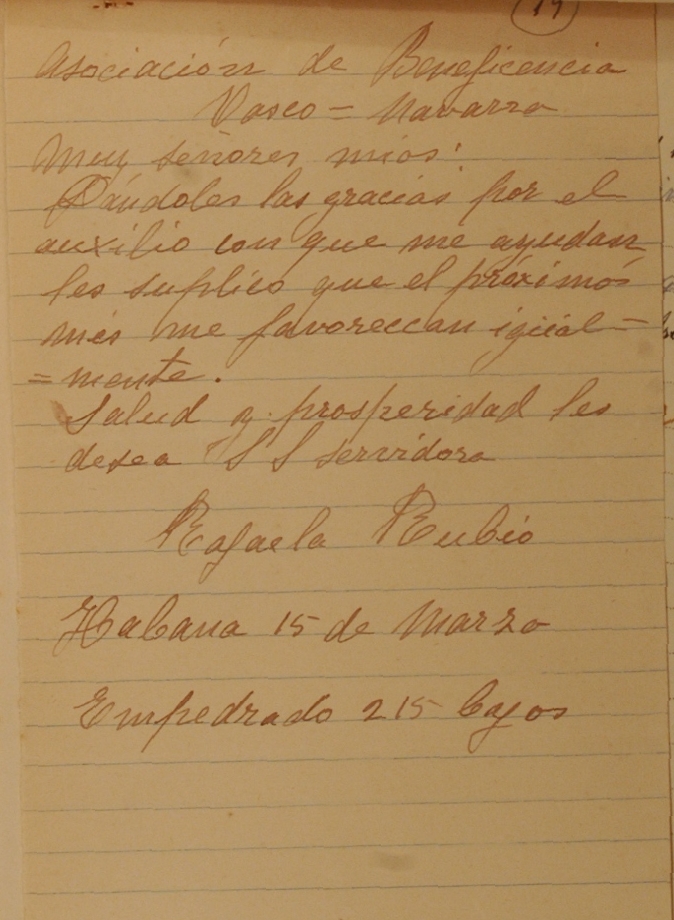 19
Asociación de Beneficencia
Vasco = Navarra
Muy señores mios:
Dándoles las gracias por el
auxilio con que me ayudan
les suplico que el próximo
mes me favoreccan igüal =
= mente.
Salud y prosperidad les
desea S S servidora
Rafaela Rubio
Habana 15 de Marzo
Empedrado 215 bajos